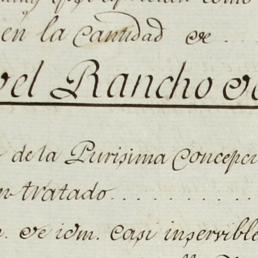 en la cantidad de
el Rancho de
de la Purisima Concepci
n tratado
de idm. casi inservible